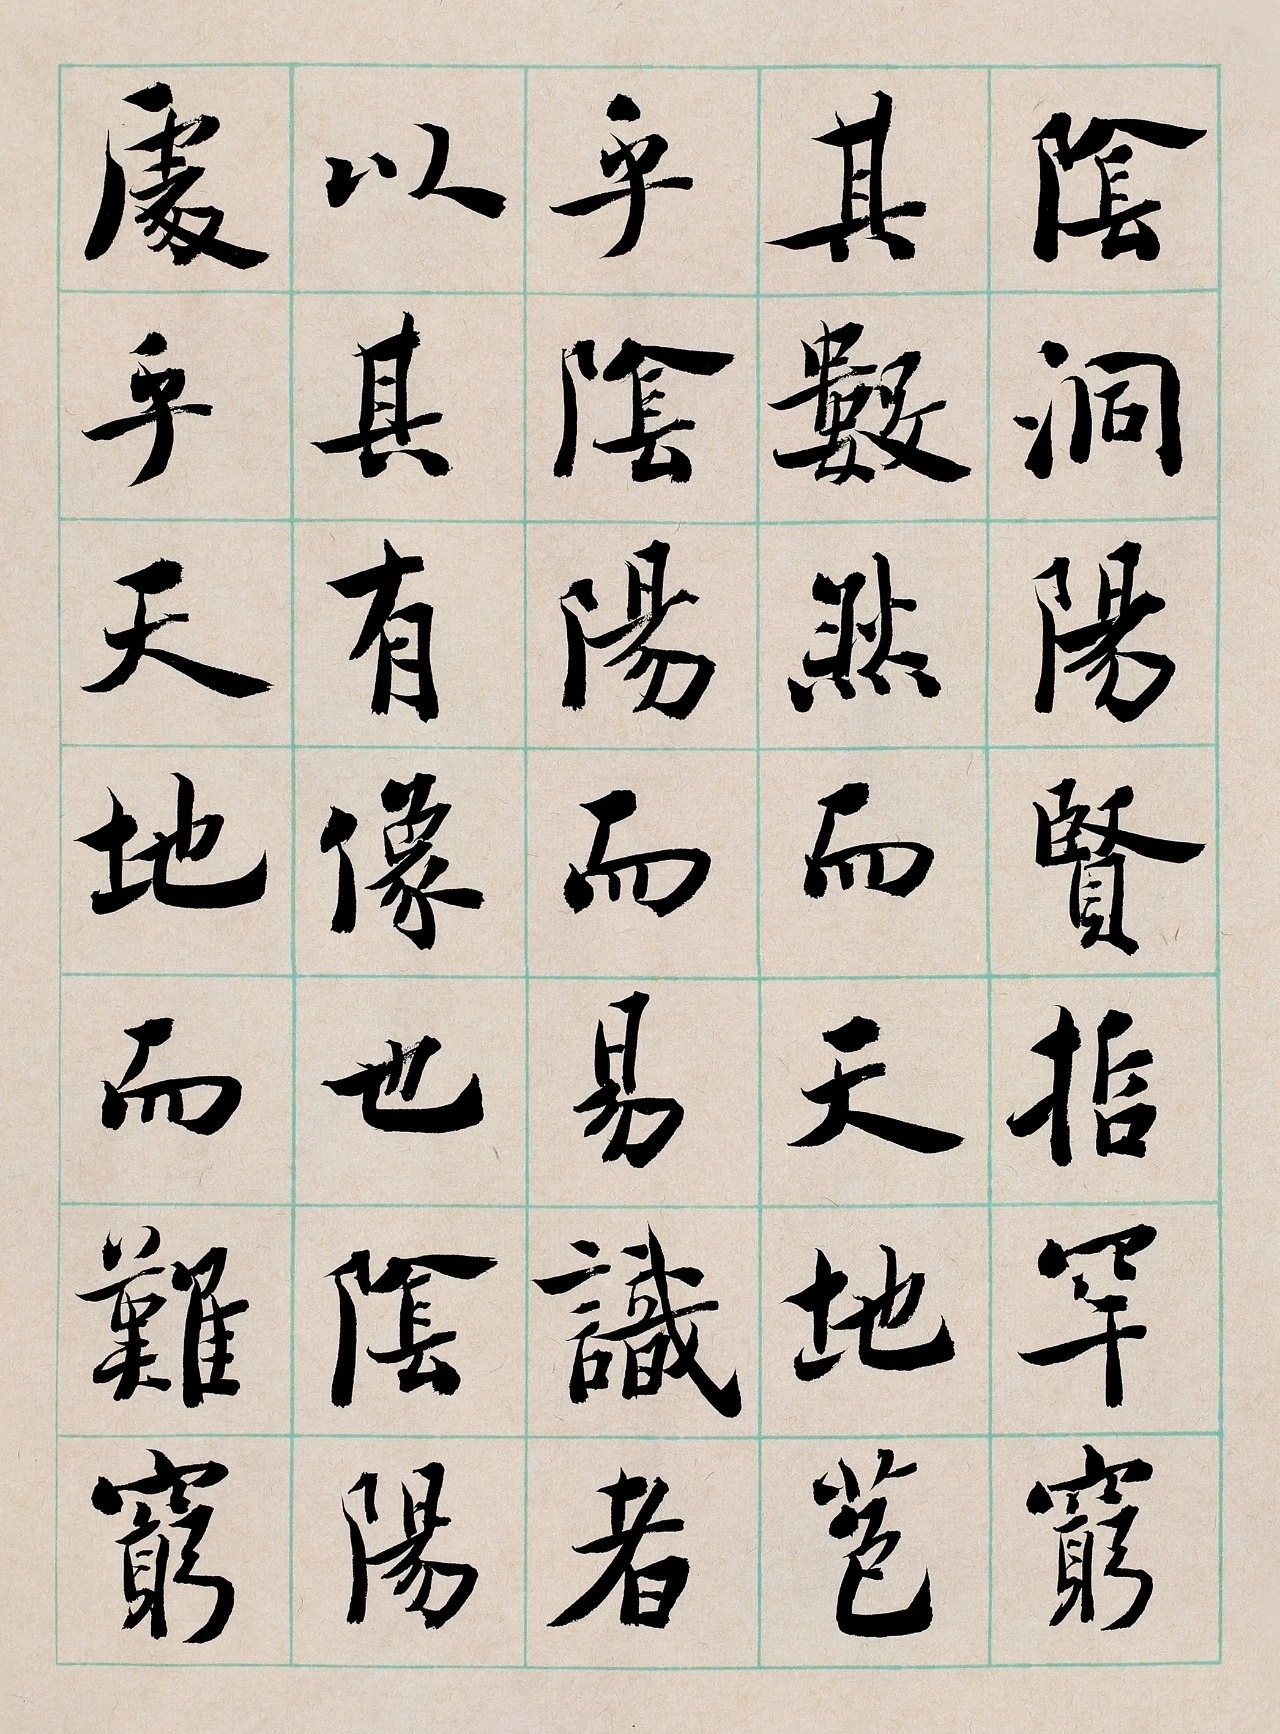 陰洞陽賢哲罕窮
其數然而天地苞
乎陰陽而易識者
以其有像也陰陽
處乎天地而難窮